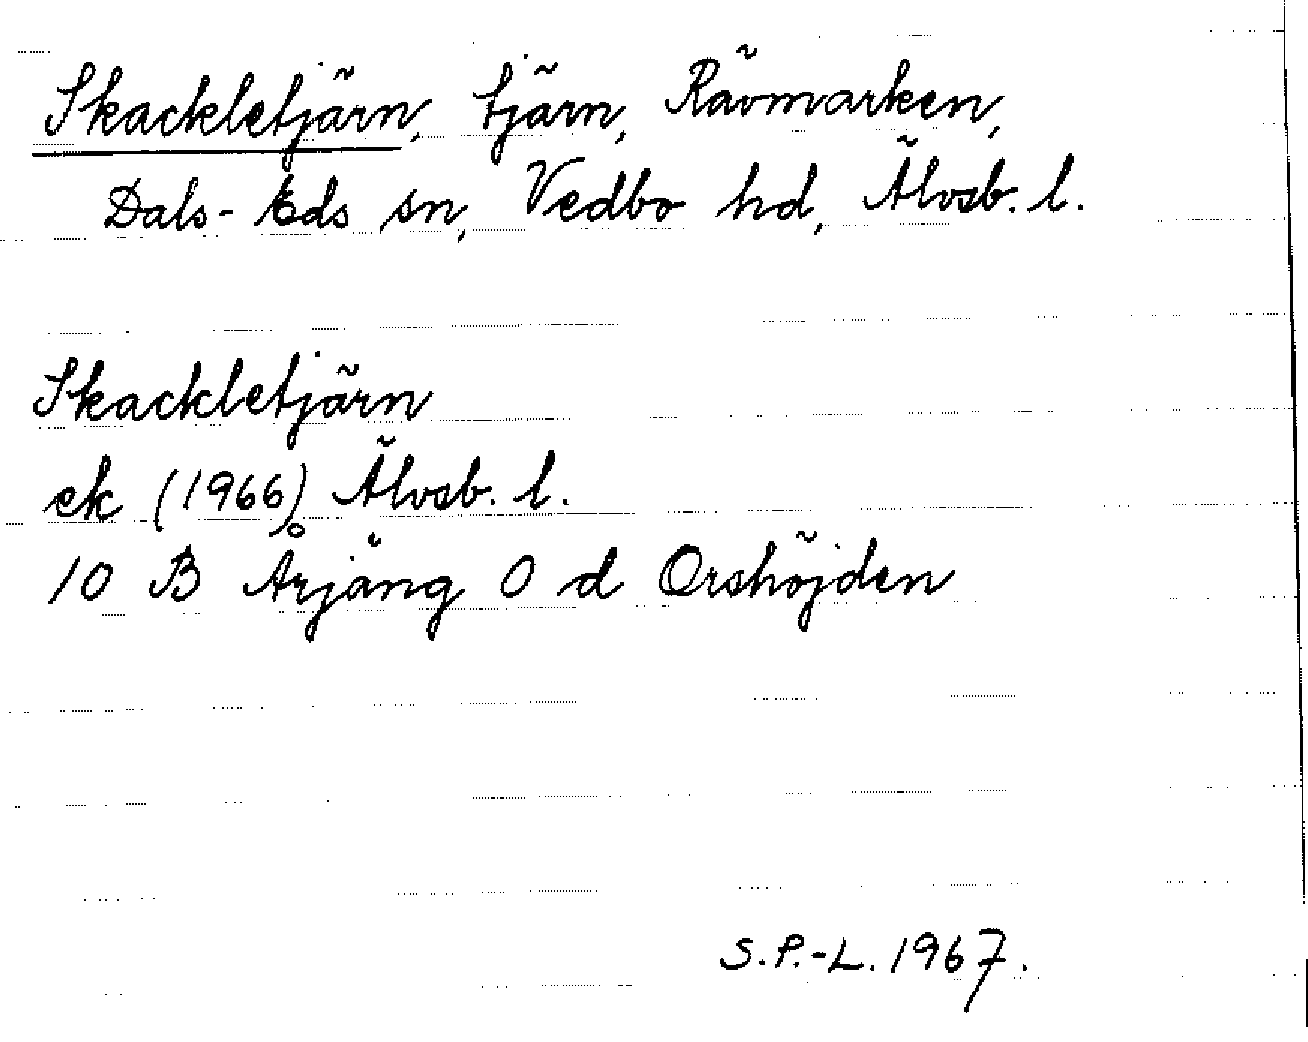 Skackletjärn, tjärn, Rävmarken,
Dals-Eds sn, Vedbo hd, Älvsb. l.
Skackletjärn
ek (1966) Älvsb. l.
10 B Årjäng 0 d Orshöjden
S.P.-L. 1967.